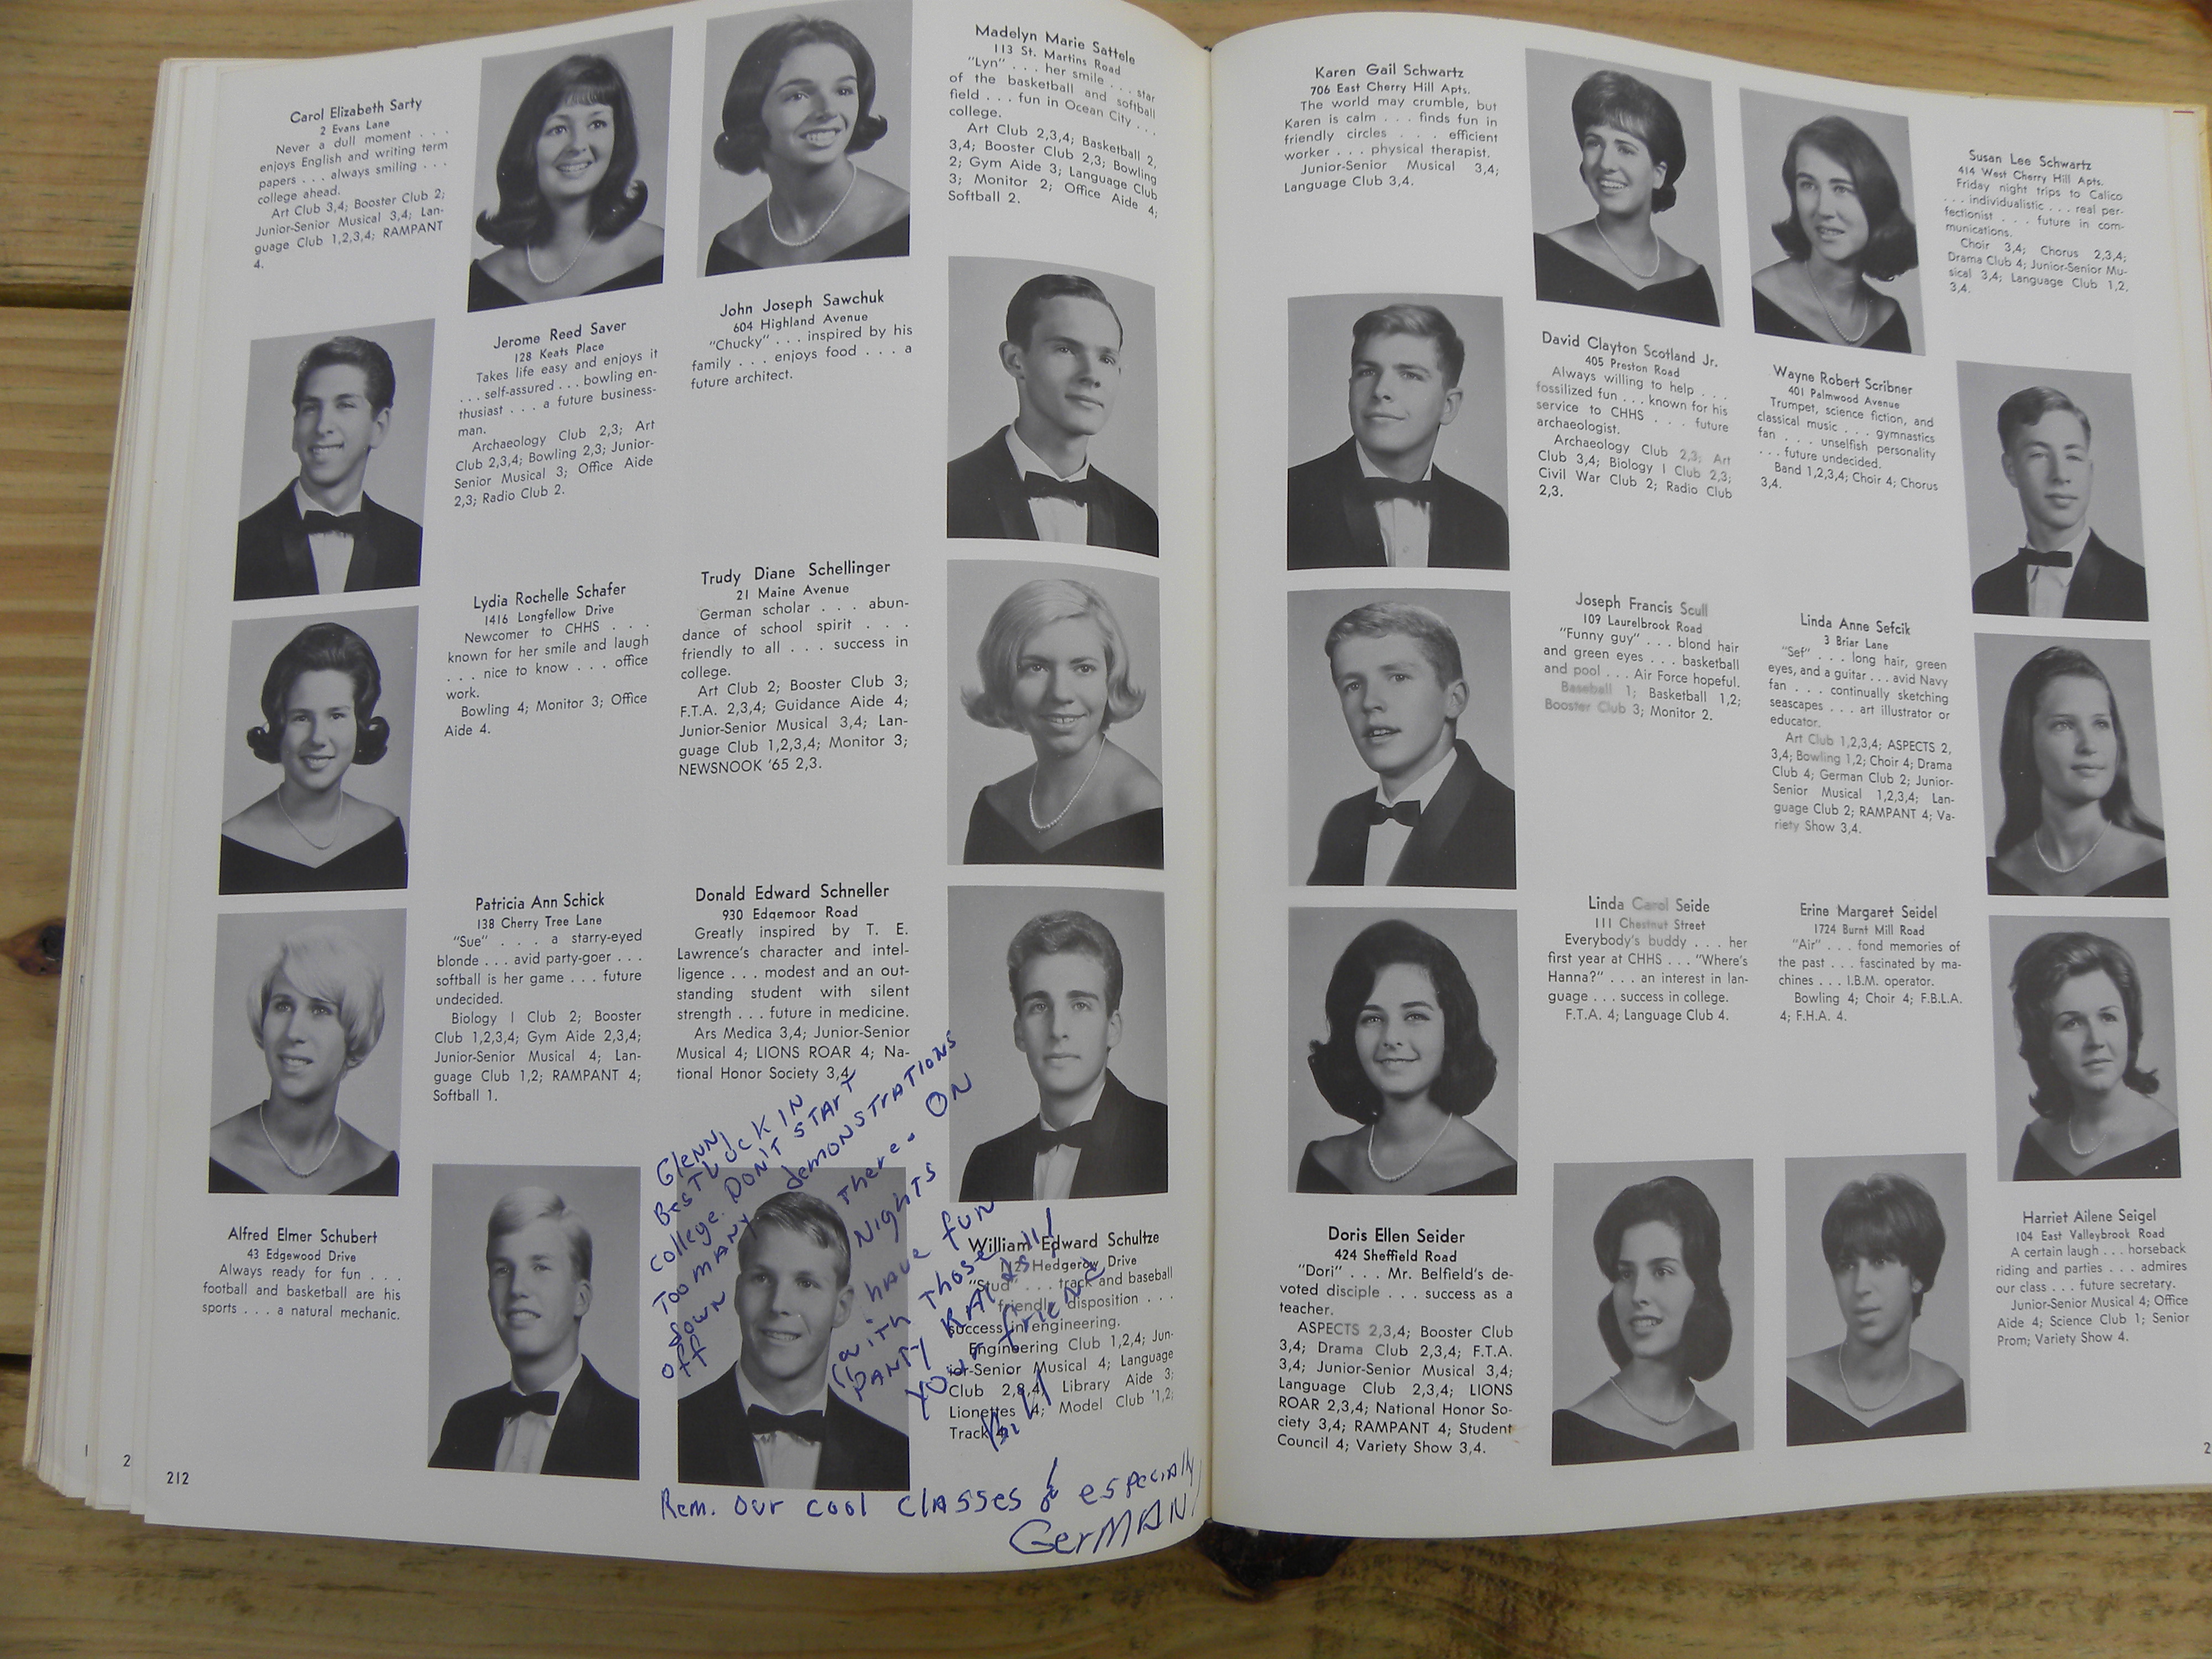 Carol Elizabeth Sarty
2 Evans Lane
Never a dull moment . . .
enjoys English and writing term
papers . . . always smiling . . .
college ahead.
Art Club 3,4; Booster Club 2;
Junior-Senior Musical 3,4; Lan-
guage Club 1,2,3,4; RAMPANT
4.
Jerome Reed Saver
128 Keats Place
Takes life easy and enjoys it
. . . self-assured . . . bowling en-
thusiast . . . a future business-
man.
Archaeology Club 2,3; Art
Club 2,3,4; Bowling 2,3; Junior-
Senior Musical 3; Office Aide
2,3; Radio Club 2.
John Joseph Sawchuk
604 Highland Avenue
"Chucky" . . . inspired by his
family . . . enjoys food . . . a
future architect.
Madelyn Marie Sattele
113 St. Martins Road
"Lyn" . . . her smile . . . star
of the basketball and softball
field . . . fun in Ocean City . . .
college.
Art Club 2,3,4; Basketball 2,
3,4; Booster Club 2,3; Bowling
2; Gym Aide 3; Language Club
3; Monitor 2; Office Aide 4;
Softball 2.
Lydia Rochelle Schafer
1416 Longfellow Drive
Newcomer to CHHS . . .
known for her smile and laugh
. . . nice to know . . . office
work.
Bowling 4; Monitor 3; Office
Aide 4.
Trudy Diane Schellinger
21 Maine Avenue
German scholar . . . abun-
dance of school spirit . . .
friendly to all . . . success in
college.
Art Club 2; Booster Club 3;
F.T.A. 2,3,4; Guidance Aide 4;
Junior-Senior Musical 3,4; Lan-
guage Club 1,2,3,4; Monitor 3;
NEWSNOOK '65 2,3.
Patricia Ann Schick
138 Cherry Tree Lane
"Sue" . . . a starry-eyed
blonde . . . avid party-goer . . .
softball is her game . . . future
undecided.
Biology I Club 2; Booster
Club 1,2,3,4; Gym Aide 2,3,4;
Junior-Senior Musical 4; Lan-
guage Club 1,2; RAMPANT 4;
Softball 1.
Donald Edward Schneller
930 Edgemoor Road
Greatly inspired by T. E.
Lawrence's character and intel-
ligence . . . modest and an out-
standing student with silent
strength . . . future in medicine.
Ars Medica 3,4; Junior-Senior
Musical 4; LIONS ROAR 4; Na-
tional Honor Society 3,4.
Alfred Elmer Schubert
43 Edgewood Drive
Always ready for fun . . .
football and basketball are his
sports . . . a natural mechanic.
William Edward Schultze
Hedgerow Drive
"Stud" . . . track and baseball
friendly disposition . . .
success in engineering.
Engineering Club 1,2,4; Jun-
ior-Senior Musical 4; Language
Club 2,3,4; Library Aide 3;
Lionettes 4; Model Club 1,2;
Track
Glenn,
Best Luck in
college. Don't start
too many demonstrations
down there. On
off nights
(have fun
with those
panty raids!!)
Your friend
Bill
Rem. our cool classes & especially
German
212
2
Karen Gail Schwartz
706 East Cherry Hill Apts.
The world may crumble, but
Karen is calm . . . finds fun in
friendly circles . . . efficient
worker . . . physical therapist.
Junior-Senior Musical 3,4;
Language Club 3,4.
Susan Lee Schwartz
414 West Cherry Hill Apts.
Friday night trips to Calico
. . . individualistic . . . real per-
fectionist . . . future in com-
munications.
Choir 3,4; Chorus 2,3,4;
Drama Club 4; Junior-Senior Mu-
sical 3,4; Language Club 1,2,
3,4.
David Clayton Scotland Jr.
405 Preston Road
Always willing to help . . .
fossilized fun . . . known for his
service to CHHS . . . future
archaeologist.
Archaeology Club 2,3; Art
Club 3,4; Biology I Club 2,3;
Civil War Club 2; Radio Club
2,3.
Wayne Robert Scribner
401 Palmwood Avenue
Trumpet, science fiction, and
classical music . . . gymnastics
fan . . . unselfish personality
. . . future undecided.
Band 1,2,3,4; Choir 4; Chorus
3,4.
Joseph Francis Scull
109 Laurelbrook Road
"Funny guy" . . . blond hair
and green eyes . . . basketball
and pool . . . Air Force hopeful.
Baseball 1; Basketball 1,2;
Booster Club 3; Monitor 2.
Linda Anne Sefcik
3 Briar Lane
"Sef" . . . long hair, green
eyes, and a guitar . . . avid Navy
fan . . . continually sketching
seascapes . . . art illustrator or
educator.
Art Club 1,2,3,4; ASPECTS 2,
3,4; Bowling 1,2; Choir 4; Drama
Club 4; German Club 2; Junior-
Senior Musical 1,2,3,4; Lan-
guage Club 2; RAMPANT 4; Va-
riety Show 3,4.
Linda Carol Seide
111 Chestnut Street
Everybody's buddy . . . her
first year at CHHS . . . "Where's
Hanna?" . . . an interest in lan-
guage . . . success in college.
F.T.A. 4; Language Club 4.
Erine Margaret Seidel
1724 Burnt Mill Road
"Air" . . . fond memories of
the past . . . fascinated by ma-
chines . . . I.B.M. operator.
Bowling 4; Choir 4; F.B.L.A.
4; F.H.A. 4.
Doris Ellen Seider
424 Sheffield Road
"Dori" . . . Mr. Belfield's de-
voted disciple . . . success as a
teacher.
ASPECTS 2,3,4; Booster Club
3,4; Drama Club 2,3,4; F.T.A.
3,4; Junior-Senior Musical 3,4;
Language Club 2,3,4; LIONS
ROAR 2,3,4; National Honor So-
ciety 3,4; RAMPANT 4; Student
Council 4; Variety Show 3,4.
Harriet Ailene Seigel
104 East Valleybrook Road
A certain laugh . . . horseback
riding and parties . . . admires
our class . . . future secretary.
Junior-Senior Musical 4; Office
Aide 4; Science Club 1; Senior
Prom; Variety Show 4.
2